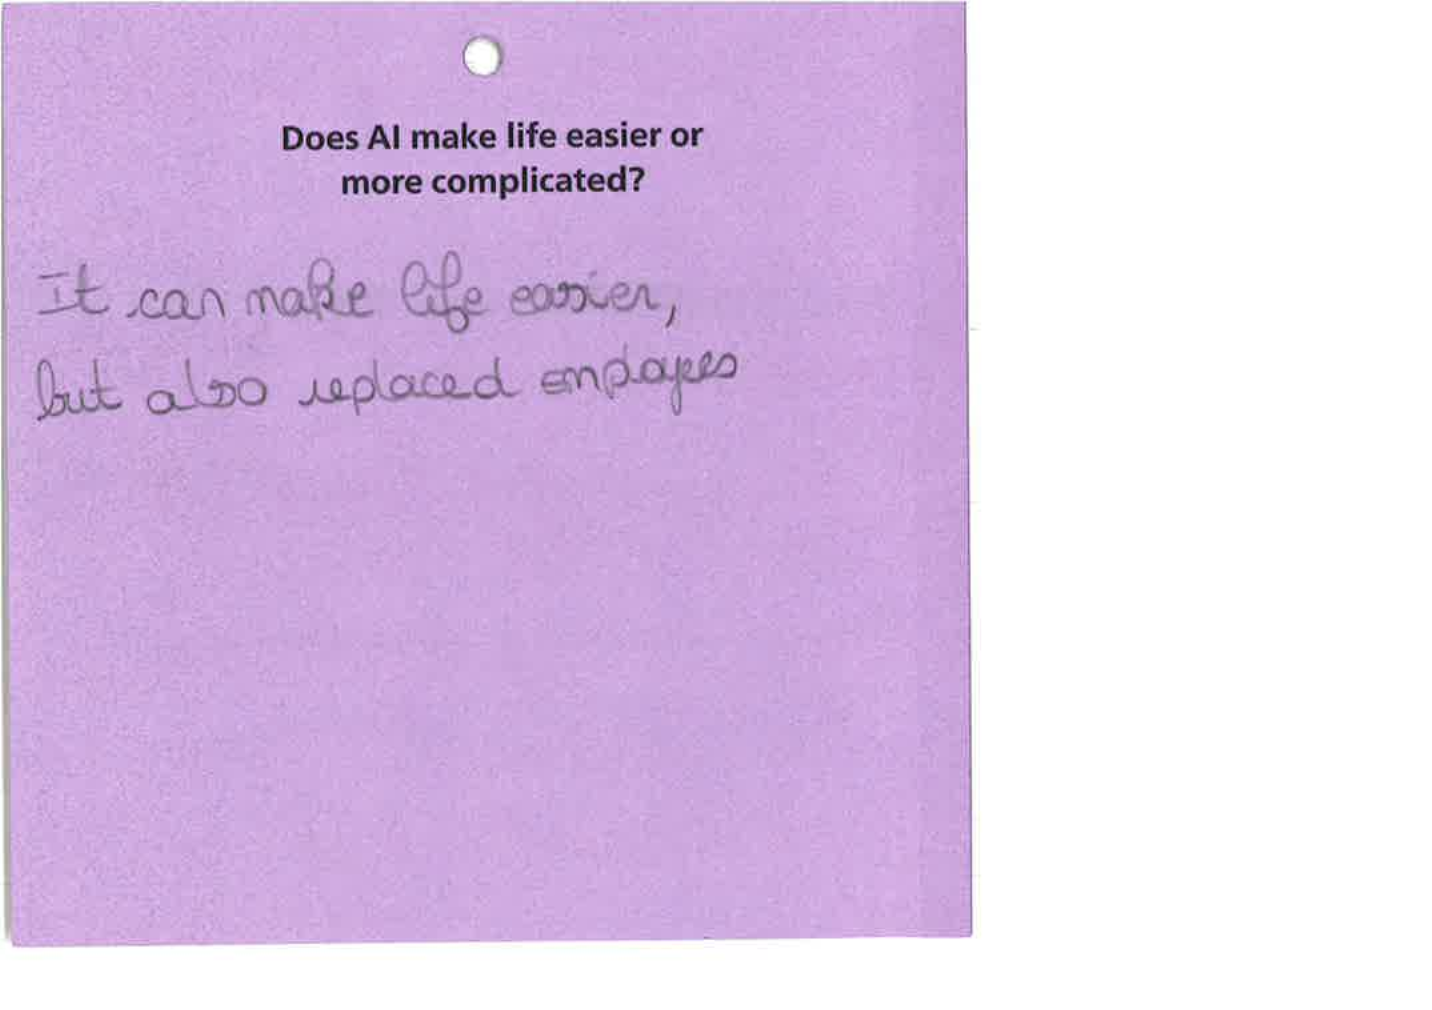 Does AI make life easier or
more complicated?
It can make life easier,
but also replaced employees